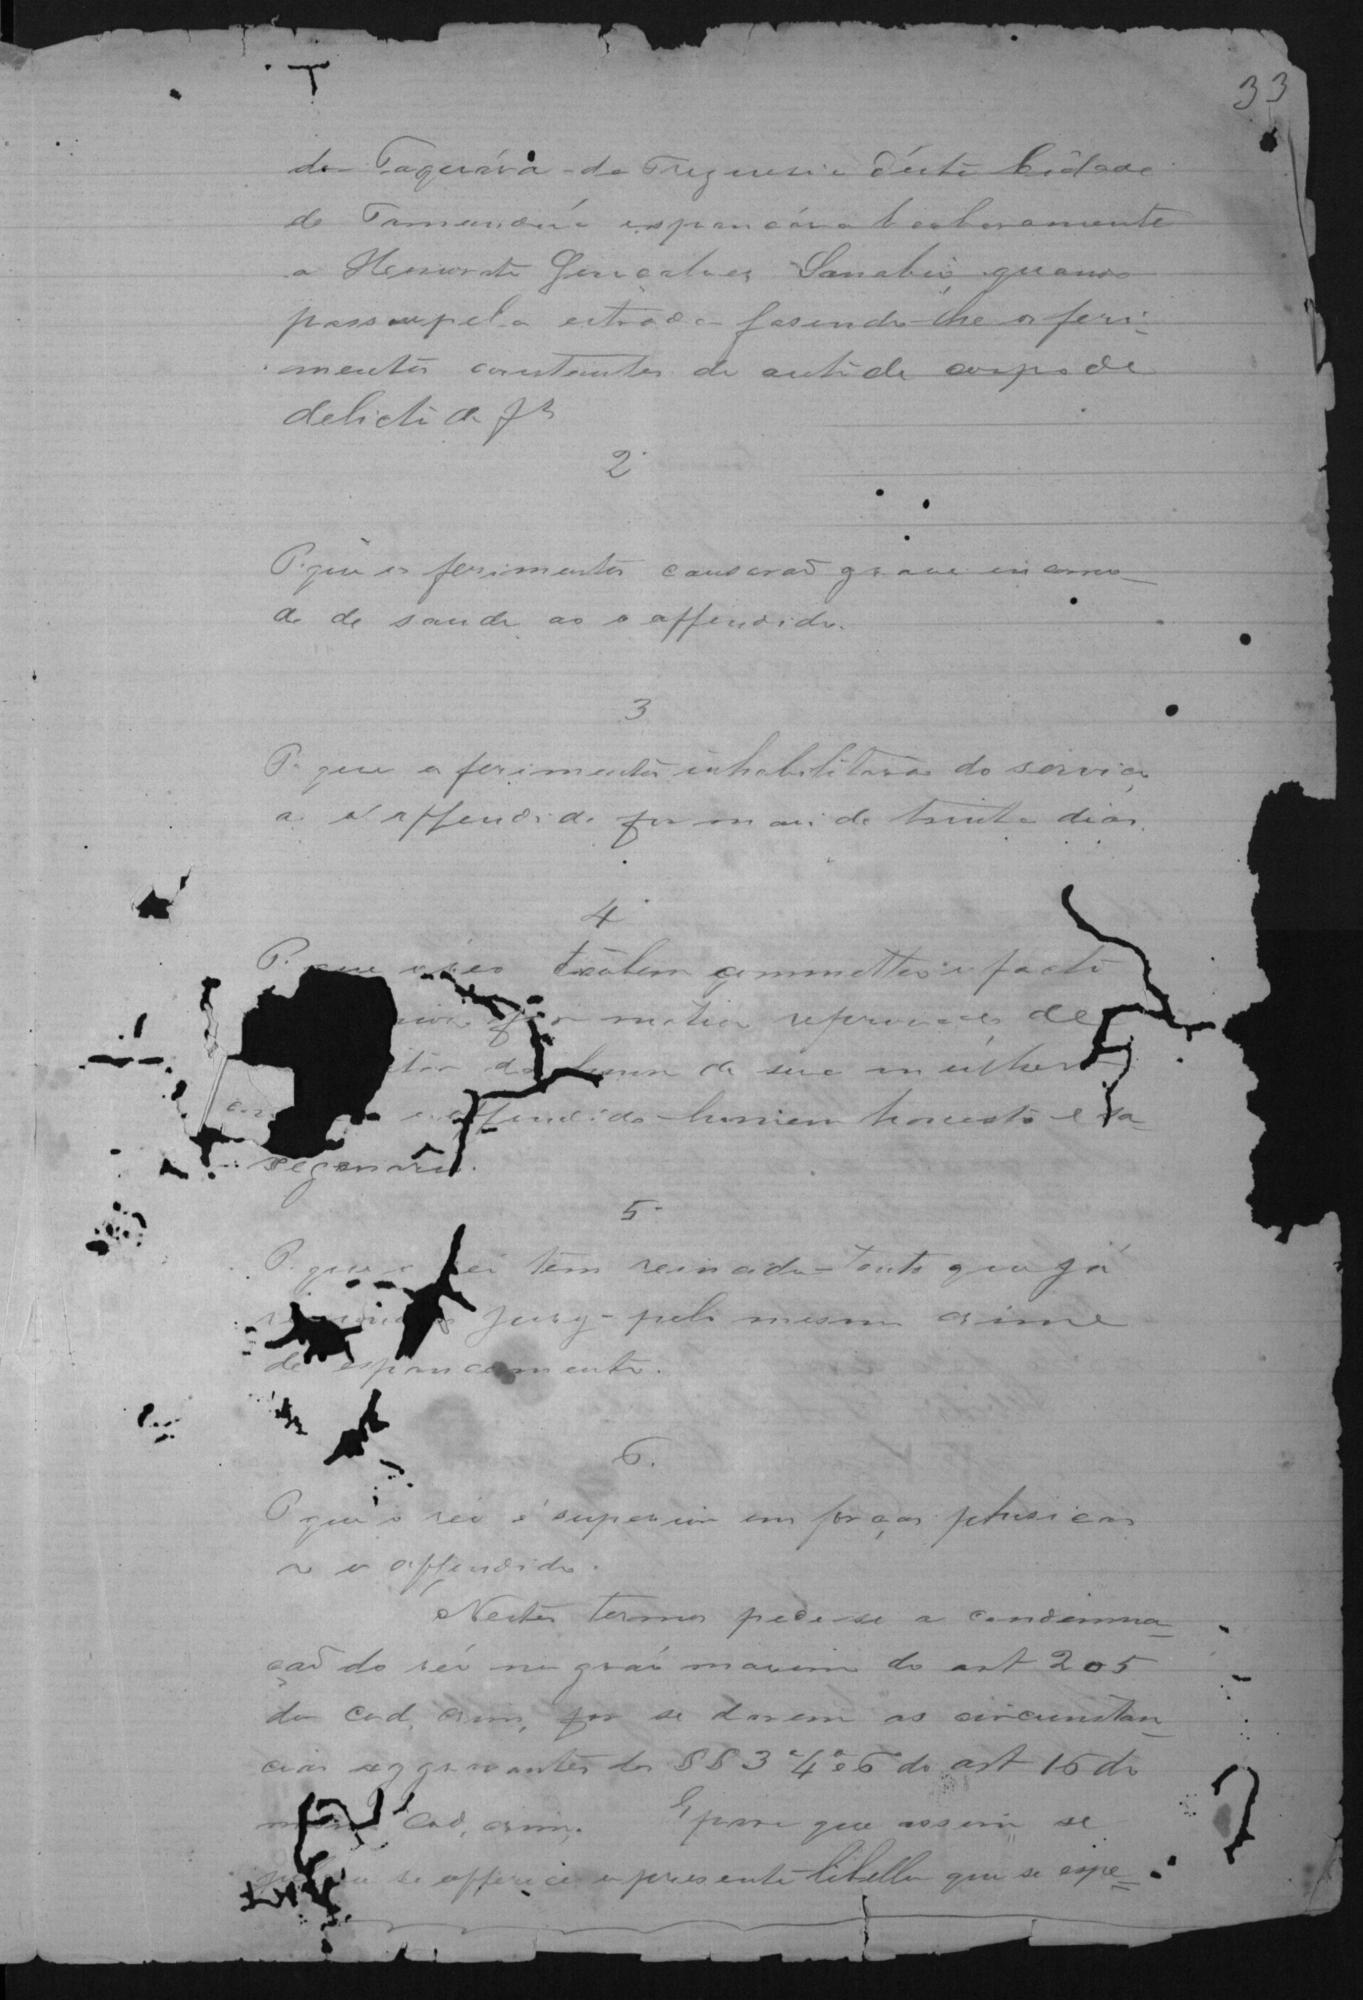 33
do Taquárá - da Freguesia d'ésta Cidade
de Tamanduá espancára barbaramente
a Honorato Gonçalves quando
passou pela estrada fasendo-lhe os feri-
mentos constantes do auto de corpo de
delicto de f
2
P. que os ferimentos causaraõ grave incomo-
do de saude ao o offendido.
3
P. que os ferimentos inhabilitaraõ do serviço
a o offendido por mais de trinta dias.
4
P. que o réo tãobem commetteo o facto
por motivo reprovado de
da honra de sua mulher
o offendido homem honesto e
segenario.
5
P. que o reo tem reincidido tanto que já
jury pelo mesmo crime
de espancamento.
6.
P. que o reo é superior em forças phisicas
a o offendido.
Nestes termos pede-se a condemna-
çaõ do réo no gráo maximo do art 205
do Cod. crim, por se darem as circunstan-
cias aggravantes dos §§ 3º 4º e 6º do art 16 do
Cod. crim. E para que assim se
se offerece o presente libello que se espe-